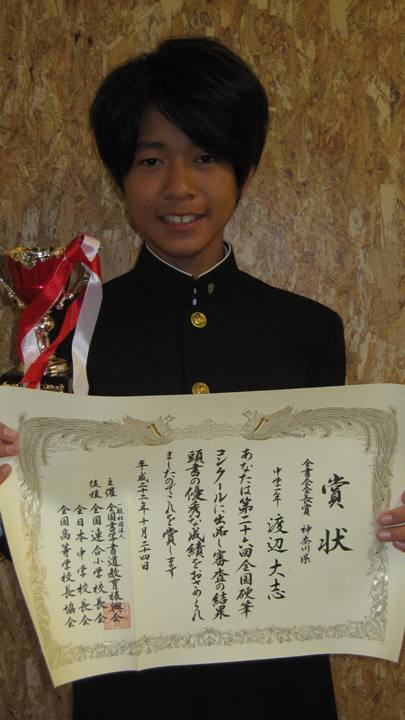 賞状
全書会会長賞　神奈川県
中学二年　渡辺大志
あなたは第二十六回全国硬筆
コンクールに出品し審査の結果
頭書の優秀な成績をおさめられ
ましたのでこれを賞します
平成二十二年十月二十四日
主催　一般社団法人　全国書写書道教育振興会
後援　全国連合小学校長会
全日本中学校長会
全国高等学校長協会